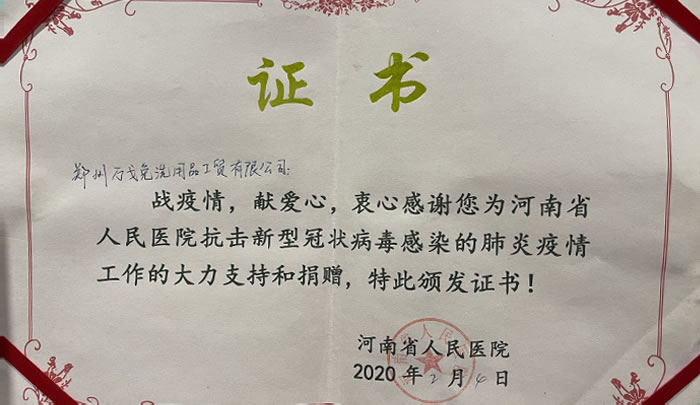 证书
郑州万戈免洗用品工贸有限公司:
战疫情，献爱心，衷心感谢您为河南省
人民医院抗击新型冠状病毒感染的肺炎疫情
工作的大力支持和捐赠，特此颁发证书！
河南省人民医院
2020年2月4日